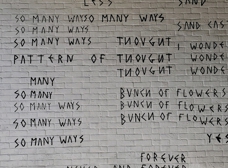 LESS SAND
SO MANY WAYS SO MANY WAYS
SO MANY WAYS SAND CAS
SO MANY WAYS THOUGHT I WONDE
PATTERN OF THOUGHT WONDE
THOUGHT WONDE
MANY
SO MANY BUNCH OF FLOWERS
SO MANY WAYS BUNCH OF FLOWERS
SO MANY WAYS BUNCH OF FLOWERS
SO MANY WAYS YES
FOREVER
FOREVER